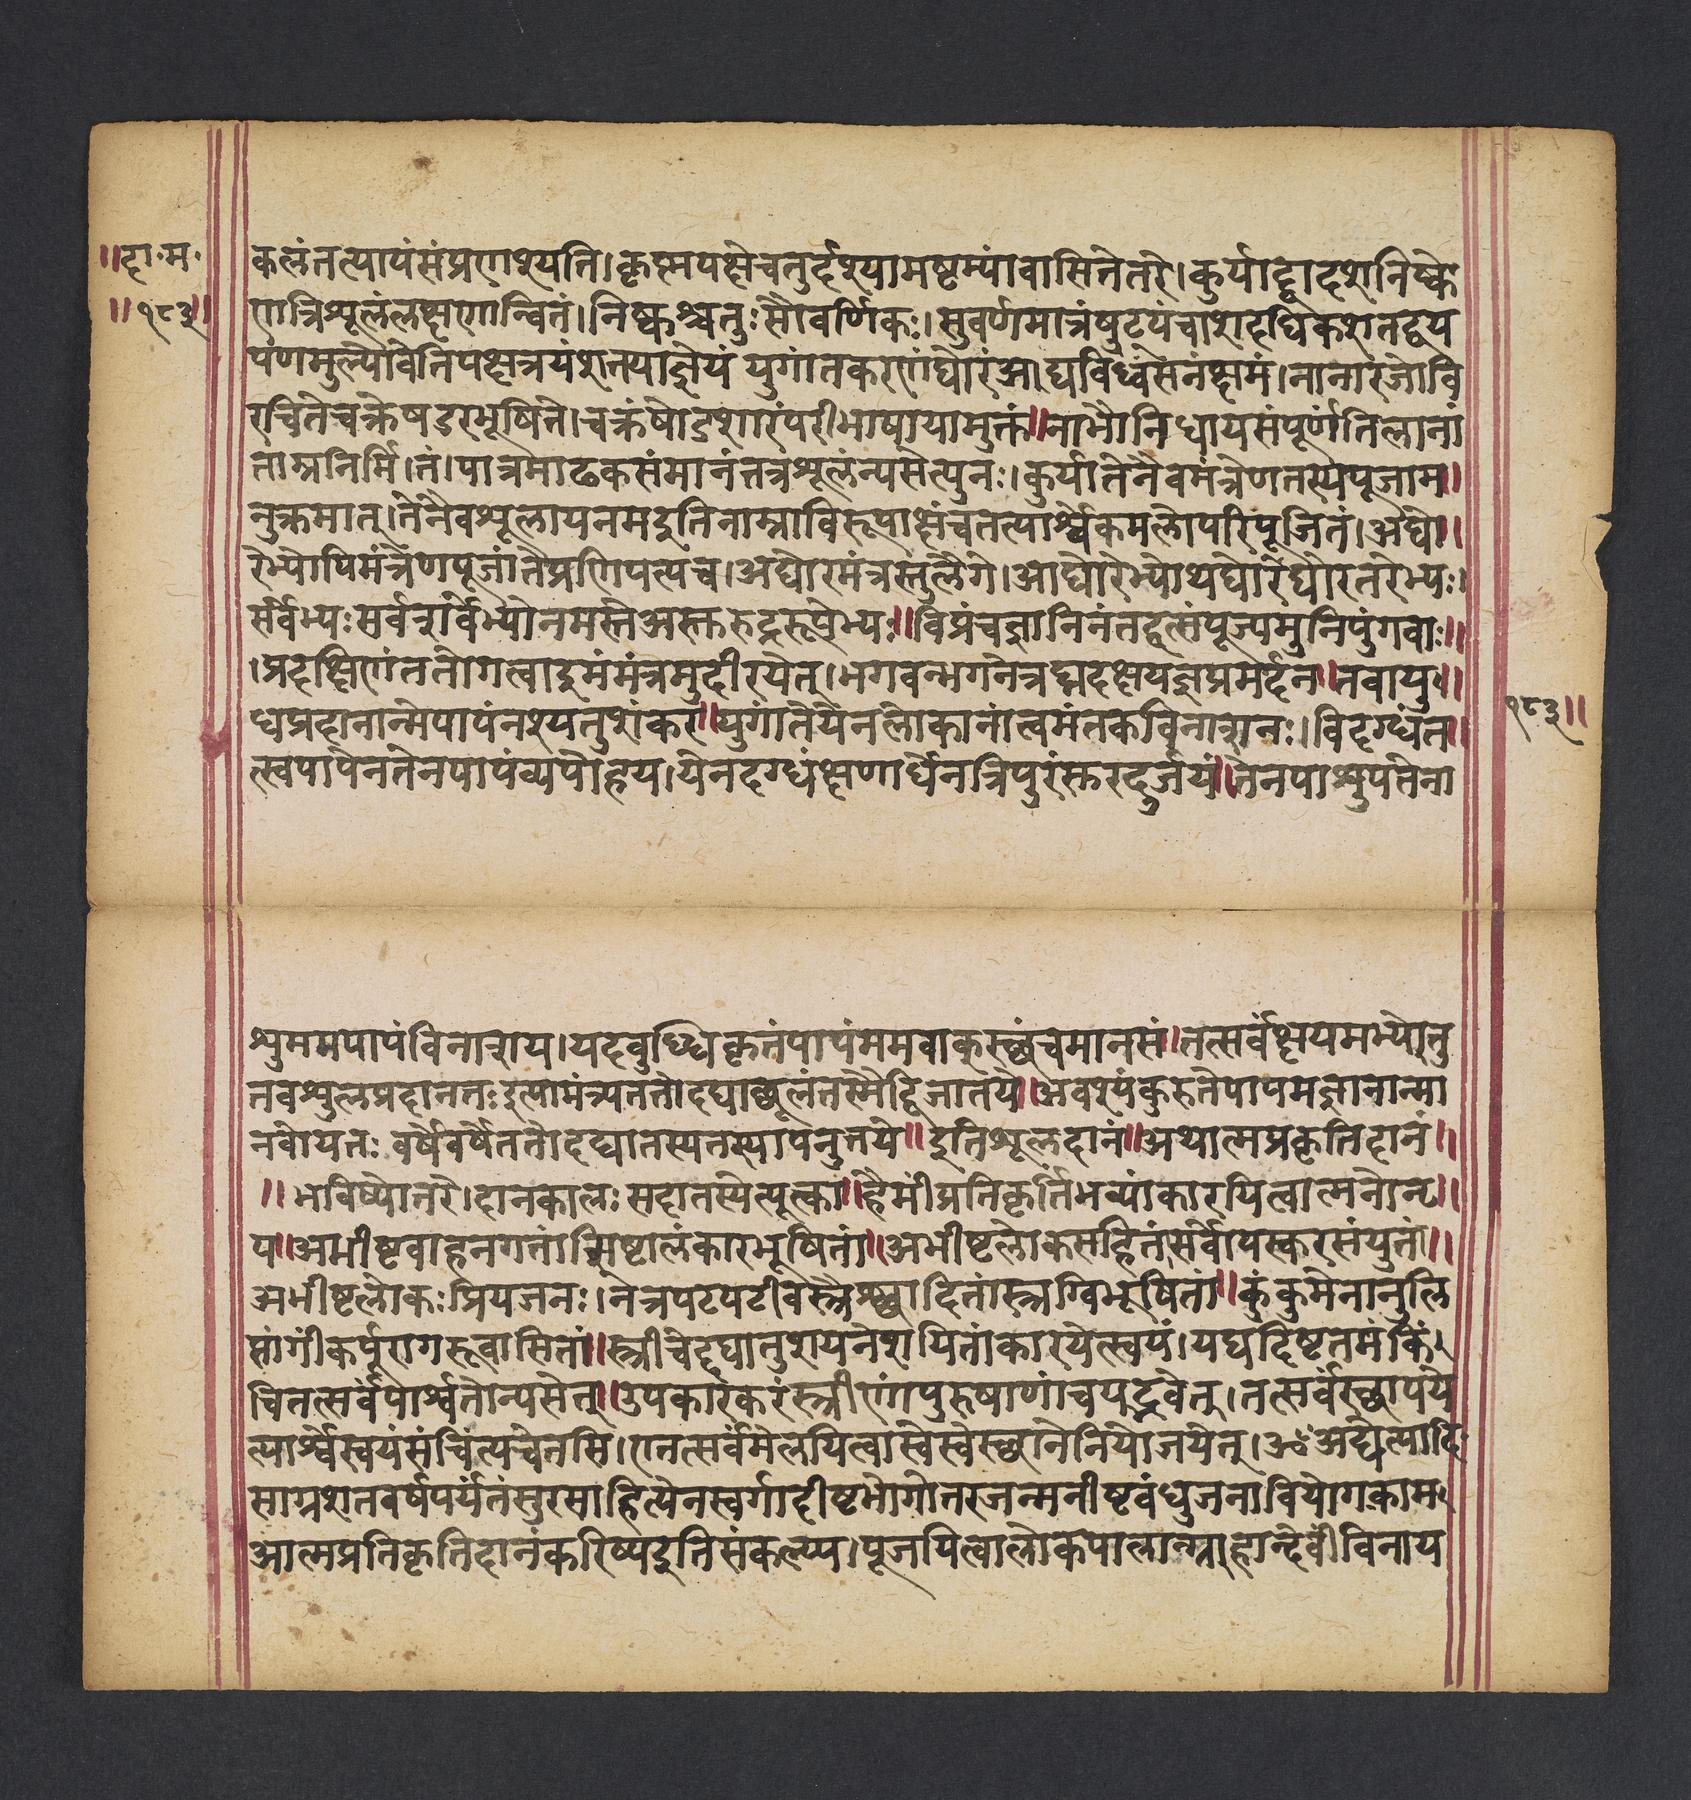 ॥दा॰म॰
॥१८३॥
कलंतत्पापंसंप्रणश्यति।कृष्णपक्षेचतुर्दश्यामष्टम्यांवासितेतरे।कुर्याद्द्वादशनिष्के
णत्रिशूलंलक्षणान्वितं।निष्कश्चतुःसौवर्णिकः।सुवर्णमात्रंषुटपंचाशदधिकशतद्वय
पणमुल्यौवेतिपक्षत्रयंशतयाज्ञेयं युगांतकरणंघोरंअ।घविध्वंसनंक्षमं।नानारजोवि
रचितेचक्रेषडरभूषिते।चक्रंषोडशारंपरीभाषायामुक्तं॥नाभौनिधायसंपूर्णतिलानां
ताम्रनिर्मि।तं।पात्रमाढकसंमानंतत्रशूलंन्यसेत्पुनः।कुर्यातेनैवमंत्रेणतस्यपूजाम॥
नुक्रमात्।तेनैवशूलायनमइतिनाम्नाविरूपाक्षंचतत्पार्श्वेकमलोपरिपूजितं।अघो॥
रेभ्योपिमंत्रेणपूजांतैप्रणिपत्यच।अघोरमंत्रस्तुलैंगे।आघोरेभ्योथघोरेघोरतरेभ्यः।
सर्वेभ्यःसर्वशर्वेभ्योनमस्तेअस्तुरुद्ररूपेभ्यः॥विप्रंचज्ञानिनंतद्वत्संपूज्यमुनिपुंगवाः॥
।प्रदक्षिणंततोगत्वाइमंमंत्रमुदीरयेत्।भगवन्भगनेत्रघ्नदक्षयज्ञप्रमर्दन॥तवायु॥
धप्रदानान्मेपापंनश्यतुशंकर॥युगांतेयेनलोकानांत्वमंतकविनाशनः।विदग्धंत॥
त्स्वपापेनतेनपापंव्यपोहय।येनदग्धंक्षणार्धेनत्रिपुरंस्तरदुर्जयं॥तेनपाशुपतेना
१८३॥
शुममपापंविनाशय।यदबुध्धिकृतंपापंममवाकस्छंचमानसं॥तत्सर्वंक्षयमभ्येतु
तवशुलप्रदानतःइत्यामंत्र्यततोदद्याछूलंतस्मैद्विजातये॥अवश्यंकुरुतेपापमज्ञानान्मा
नवोयतः वर्षेवर्षेततोदद्यातस्यतस्यापनुत्तये॥इतिशूलदानं॥अथात्मप्रकृतिदानं॥
॥भविष्योत्तरे।दानकालःसदातस्येत्युत्का॥हैमींप्रतिकृतिंभव्यांकारयित्वात्मनोन्ट॥
प॥अभीष्टवाहनगतांमिष्टालंकारभूषितां॥अभीष्टलोकसहितंसर्वोपस्करसंयुतां॥
अभीष्टलोकःप्रियजनः।नेत्रपटपटीवस्त्रैश्छादितांस्त्रग्विभूषितां॥कुंकुमेनानुलि
प्तांगींकर्पूरागरूवासितां॥स्त्रीचेद्दद्यातुशयनेशयितांकारयेत्स्वयं।यद्यदिष्टतमंकिं
चितत्सर्वंपार्श्वतोन्यसेत्॥उपकारंकरंस्त्रीणांपुरुषाणांचयद्भवेत्।तत्सर्वंस्छापये
त्पार्श्वेस्वयंसंचिंत्यचेतसि।एतत्सर्वंमेलयित्वास्वेस्वेस्छानेनियोजयेत्।ॐअद्येत्यादि
साग्रशतवर्षपर्यंतंसुरसाहित्येनस्वर्गादीष्टभोगोत्तरजन्मनीष्टबंधुजनावियोगकाम
आत्मप्रतिकृतिदानंकरिष्यइतिसंकल्प्य।पूजयित्वालोकपालान्ग्रहान्देवींविनाय